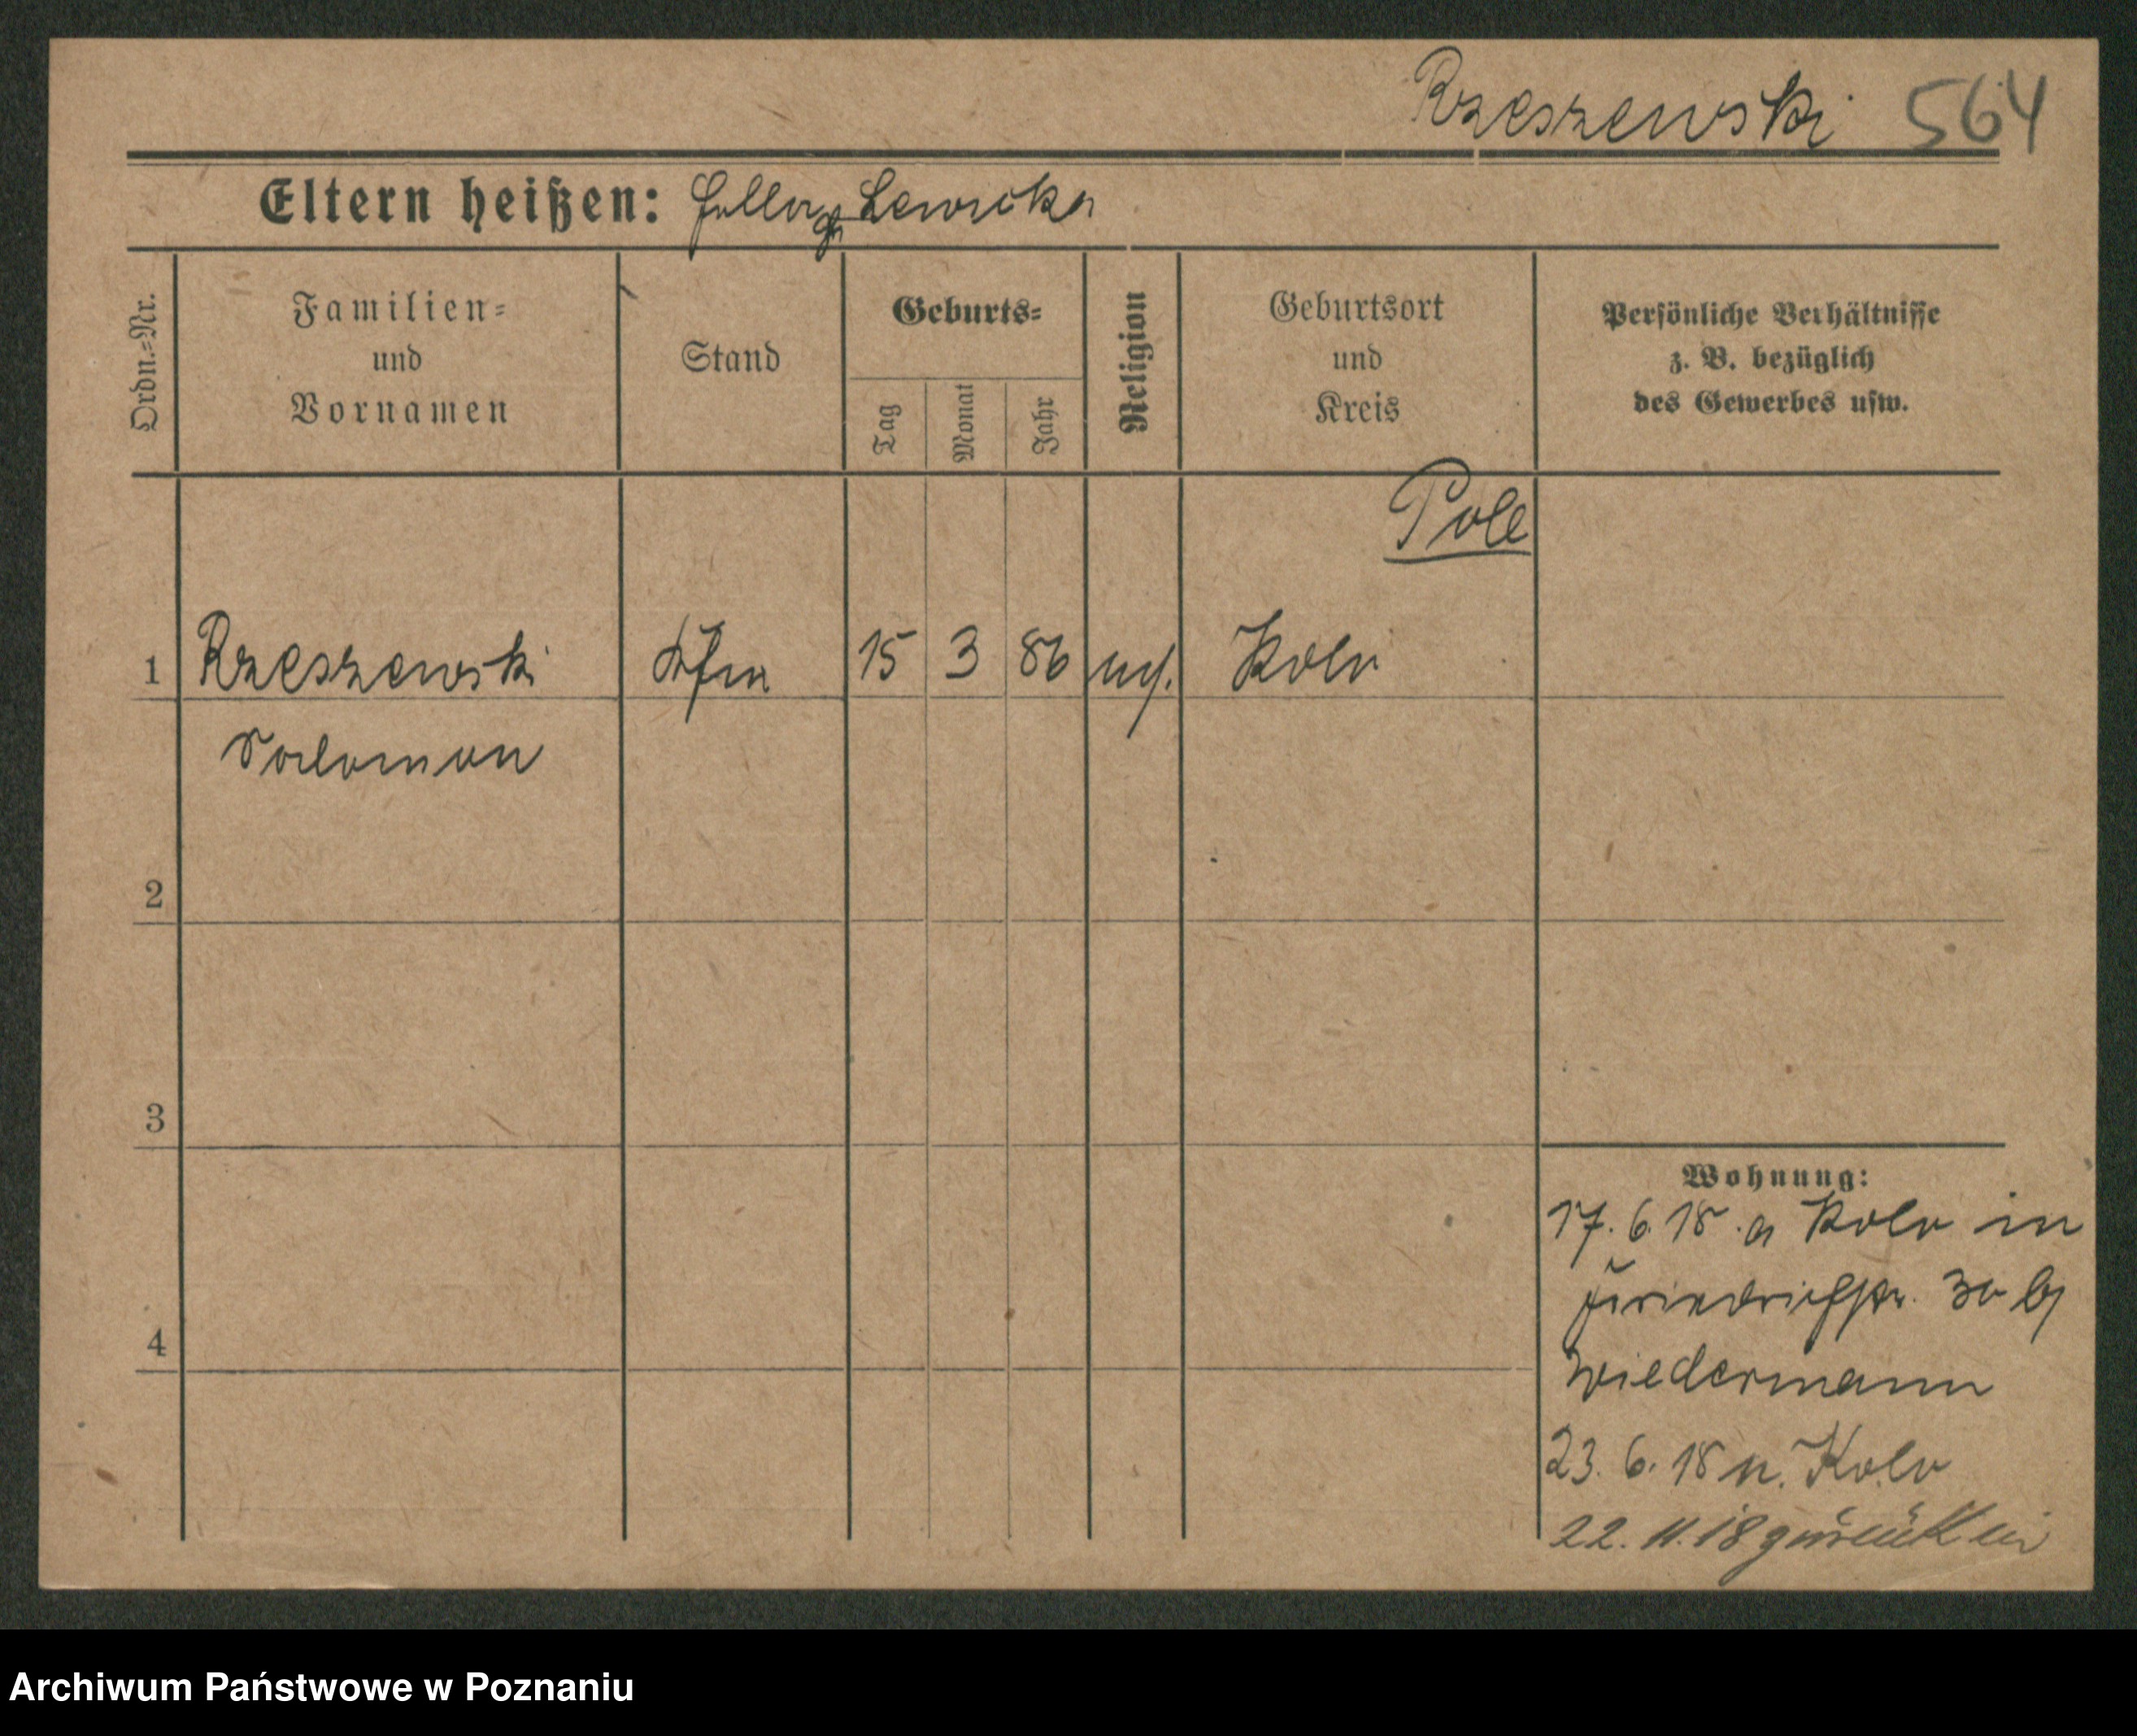 Rzeszewski 564
Eltern heißen: Lewicka
Ordn.-Nr.
Familien-
und
Vornamen
Stand
Geburts-
Tag
Monat
Jahr
Religion
Geburtsort
und
Kreis
Persönliche Verhältnisse
z. B. bezüglich
des Gewerbes usw.
Pole
1 Rzeszewski Kfm 15 3 86 Kolo
Salomon
2
3
4
Wohnung:
17. 6. 18. a Kolo in
Friedrichstr. 30 bei
Wiedermann
23. 6. 18 n. Kolo
22. 11. 18
Archiwum Państwowe w Poznaniu